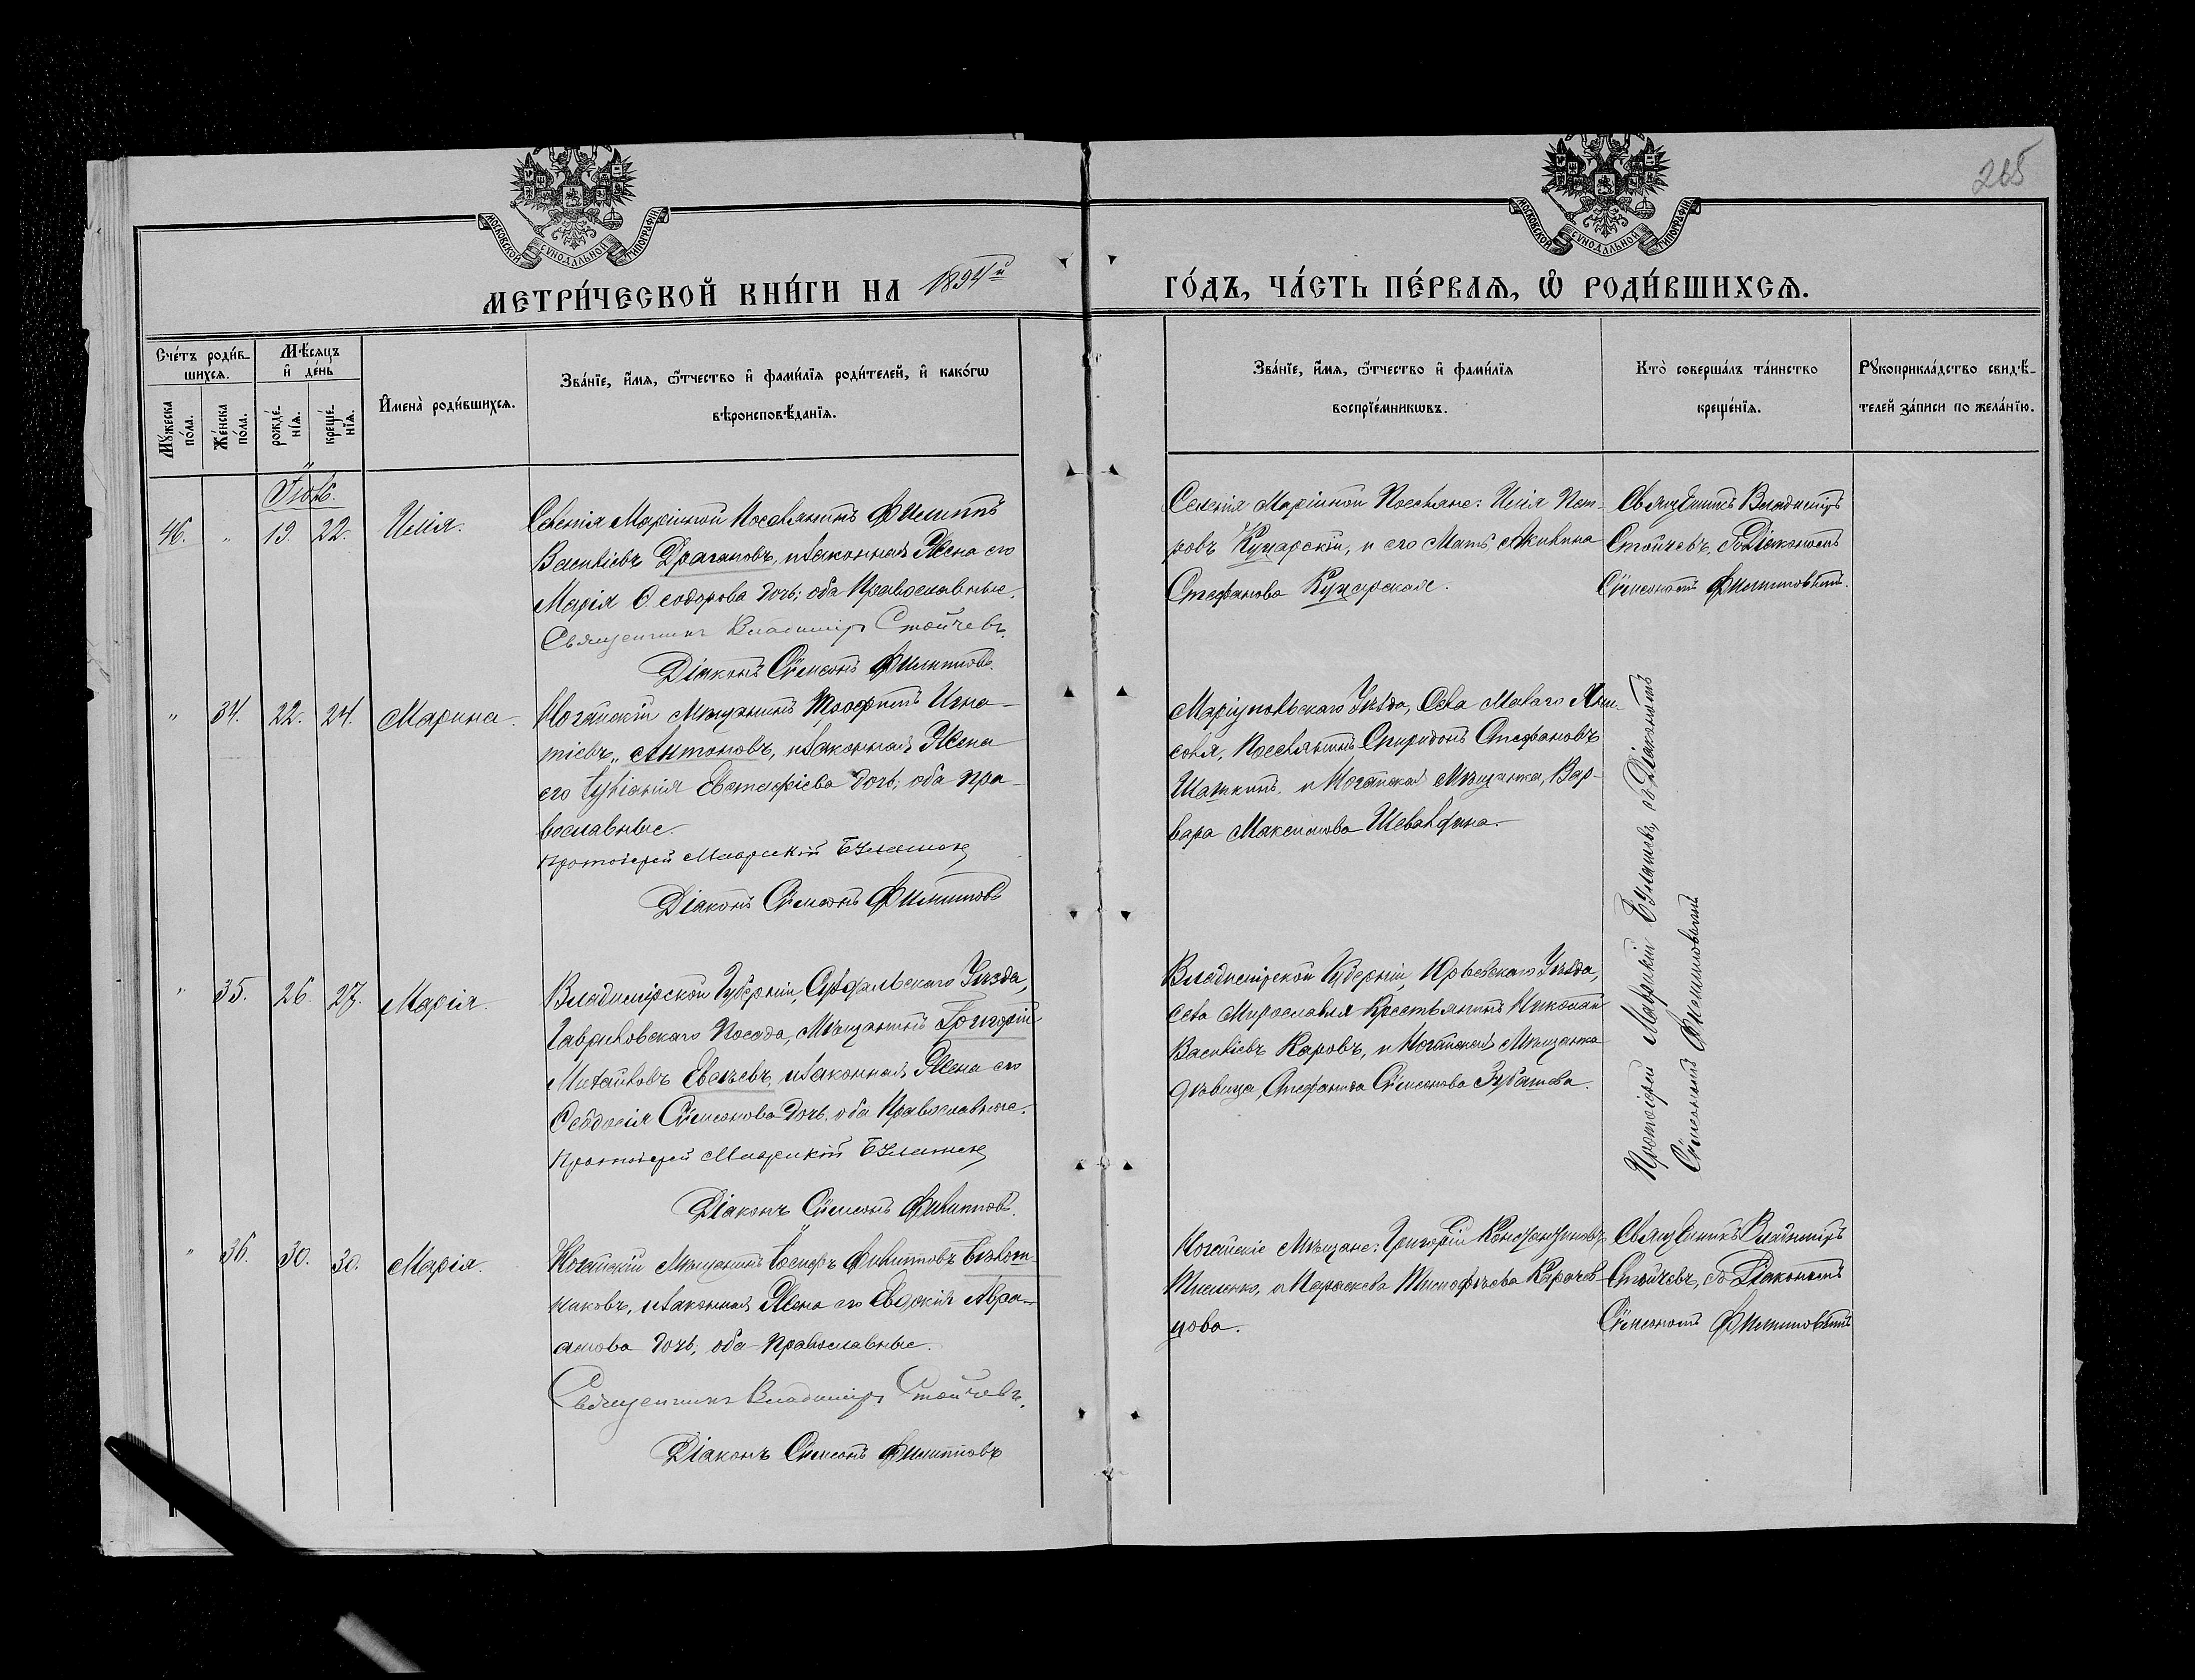 265
МОСКОВСКОЙ СѴНОДАЛЬНОЙ ТИПОГРАФІИ
МОСКОВСКОЙ СѴНОДАЛЬНОЙ ТИПОГРАФІИ
МЕТРИ́ЧЕСКОЙ КНИ́ГИ НА 1894й
ГО́ДЪ, ЧА́СТЬ ПЕ́РВАѦ, Ѡ РОДИ́ВШИХСѦ.
Сче́тъ роди́в-
шихсѧ.
Мꙋ́жеска
по́ла.
Же́нска
по́ла.
Мѣ́сѧцъ
и҆ де́нь
рожде́-
нїѧ.
креще́-
нїѧ.
И҆мена̀ роди́вшихсѧ.
Зва́нїе, и҆́мѧ, ѻ҆́тчество и҆ фами́лїѧ роди́телей, и҆ како́гѡ
вѣроисповѣ́данїѧ.
Зва́нїе, и҆́мѧ, ѻ҆́тчество и҆ фами́лїѧ
воспрїе́мникѡвъ.
Кто̀ соверша́лъ та́инство
креще́нїѧ.
Рꙋкоприкла́дство свидѣ́-
телей за́писи по жела́нїю.
46. " 19. 22. Илія.
Селенія Маріиной Поселянинъ Филиппъ
Васильевъ Драгановъ, и законная Жена его
Марія Ѳеодорова дочь; оба Православные.
Священникъ Владиміръ Стойчевъ.
Діаконъ Сѵмеонъ Филипповъ.
Селенія Маріиной Поселяне: Илія Пет-
ровъ Куцарскій, и его Мать Акилина
Стефанова Куцарская.
Священникъ Владиміръ
Стойчевъ, съ Діакономъ
Сѵмеономъ Филипповымъ.
" 34. 22. 24. Марина.
Ногайскій Мѣщанинъ Трофимъ Игна-
тіевъ Антоновъ, и законная Жена
его Іуліанія Евстафіева дочь; оба пра-
вославные.
Протоіерей Маврикій Булашевъ
Діаконъ Сѵмеонъ Филипповъ
Маріупольскаго Уѣзда, Села Малаго Яни-
соля, Поселянинъ Спиридонъ Стефановъ
Шапкинъ, и Ногайская Мѣщанка, Вар-
вара Максимова
Протоіерей Маврикій Булашевъ, съ Діакономъ
Сѵмеономъ Филипповымъ
" 35. 26. 27. Марія.
Владимірской Губерніи, Суздальскаго Уѣзда,
Гавриловскаго Посада, Мѣщанинъ Григорій
Михайловъ и законная Жена его
Ѳеодосія Сѵмеонова дочь, оба Православные.
Протоіерей Маврикій Булашевъ
Діаконъ Сѵмеонъ Филипповъ.
Владимірской Губерніи, Юрьевскаго Уѣзда,
Села Мирославля Крестьянинъ Николай
Васильевъ Каровъ, и Ногайская Мѣщанка
дѣвица, Стефанида Сѵмеонова
" 36. 30. 30. Марія.
Ногайскій Мѣщанинъ Іосифъ Филипповъ
никовъ, и законная Жена его Евдокія Авра-
амова дочь; оба православные.
Священникъ Владиміръ Стойчевъ.
Діаконъ Сѵмеонъ Филипповъ
Ногайскіе Мѣщане: Григорій Константиновъ
и Параскева Тимофѣева
цова.
Священникъ Владиміръ
Стойчевъ, съ Діакономъ
Сѵмеономъ Филипповымъ